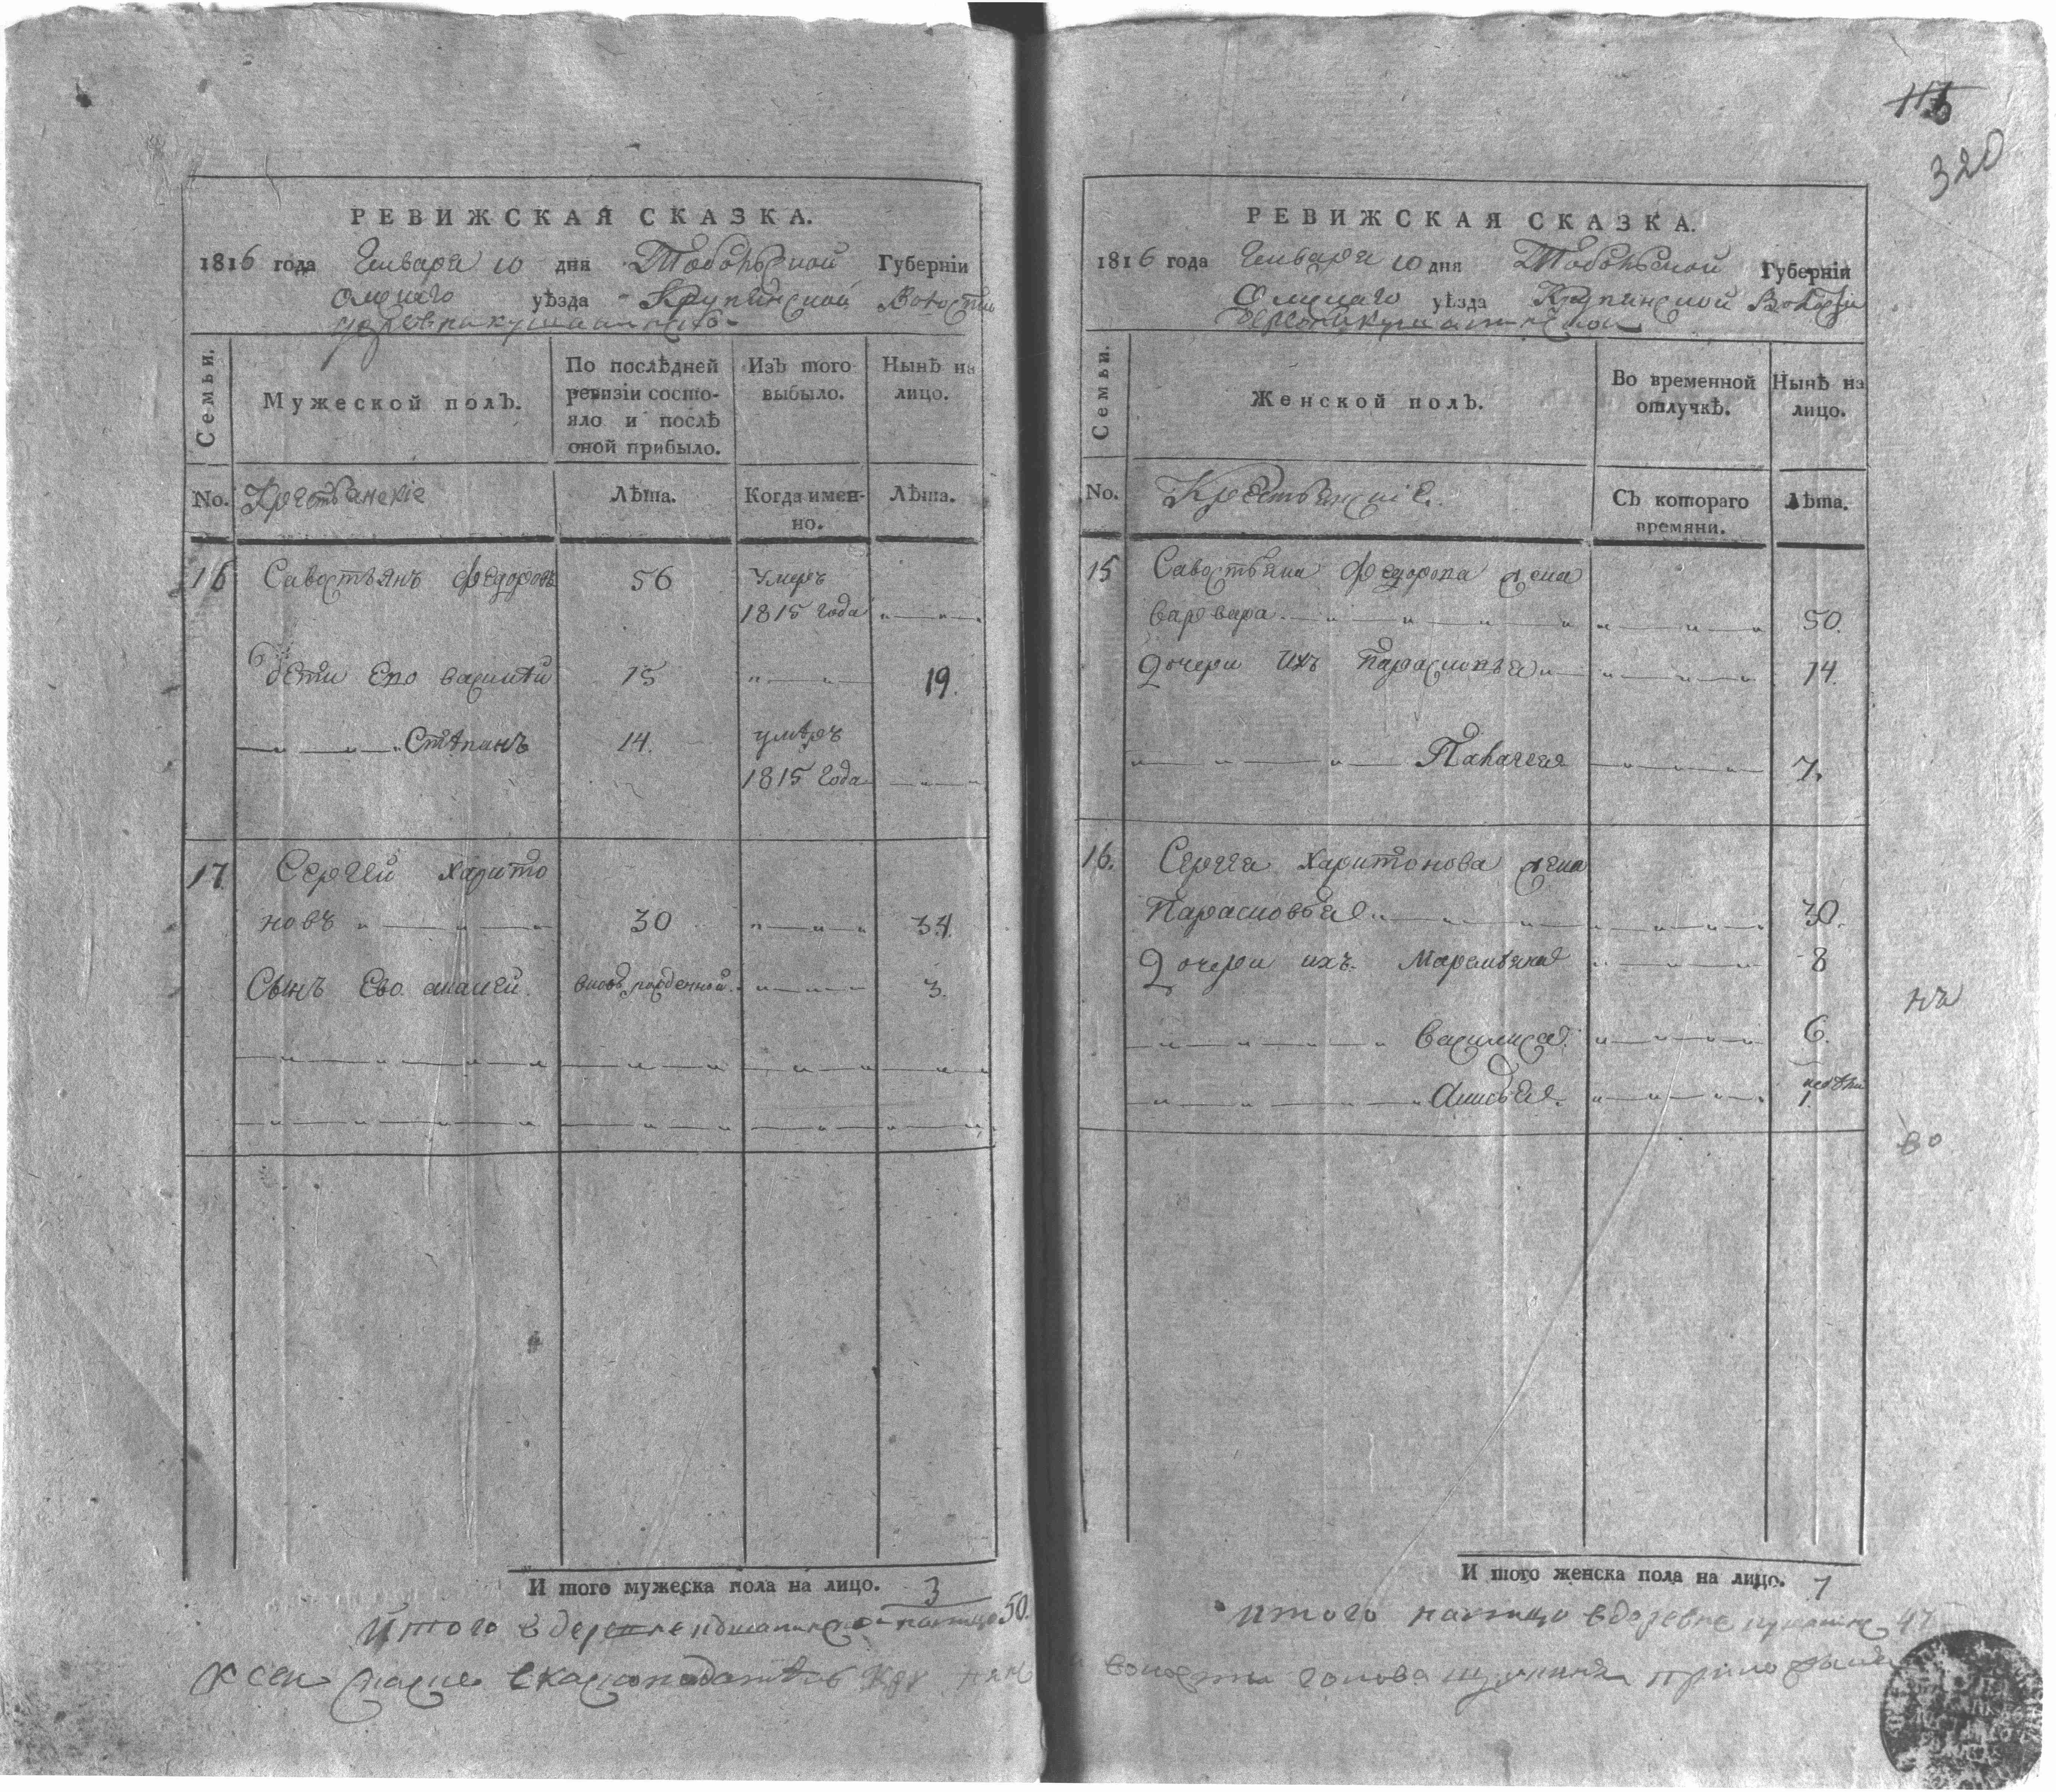 РЕВИЖСКАЯ СКАЗКА.
1816 года Генваря 10 дня Тобольской Губерніи
Омскаго уѣзда Крупинской Волости
Семьи.
Мужеской полъ.
По послѣдней ревизіи состо-
яло и послѣ
оной прибыло.
Изъ того
выбыло.
Нынѣ на
лицо.
No. Крестьянскіе
Лѣта.
Когда имен-
но.
Лѣта.
16 Савостьянъ Федоровъ 56 Умеръ
1815 года
Дети Ево василѣй 15 19.
Стѣпанъ 14. умѣръ
1815 года
17 Сергей Харито
новъ 30 34.
Сынъ Ево ананей. вновь рожденной. 3.
И того мужеска пола на лицо. 3
Итого в на лицо 50.
РЕВИЖСКАЯ СКАЗКА.
1816 года Генваря 10 дня Тобольской Губерніи
Омскаго уѣзда Крупинской Волости
Семьи.
Женской полъ.
Во временной
отлучкѣ.
Нынѣ на
лицо.
No. Крестьянскіе.
Съ котораго
времяни.
Лѣта.
15 Савостьяна Федорова жена
варвара. 50.
Дочери ихъ Парасковья 14.
Палагея 7.
16. Сергея Харитонова жена
Парасковья 30.
Дочери ихъ Маремьяна 8
Василиса 6.
Анисья 1. недѣли
И того женска пола на лицо. 7
итого на лицо в деревне 47
волости голова приложилъ
320
на
во